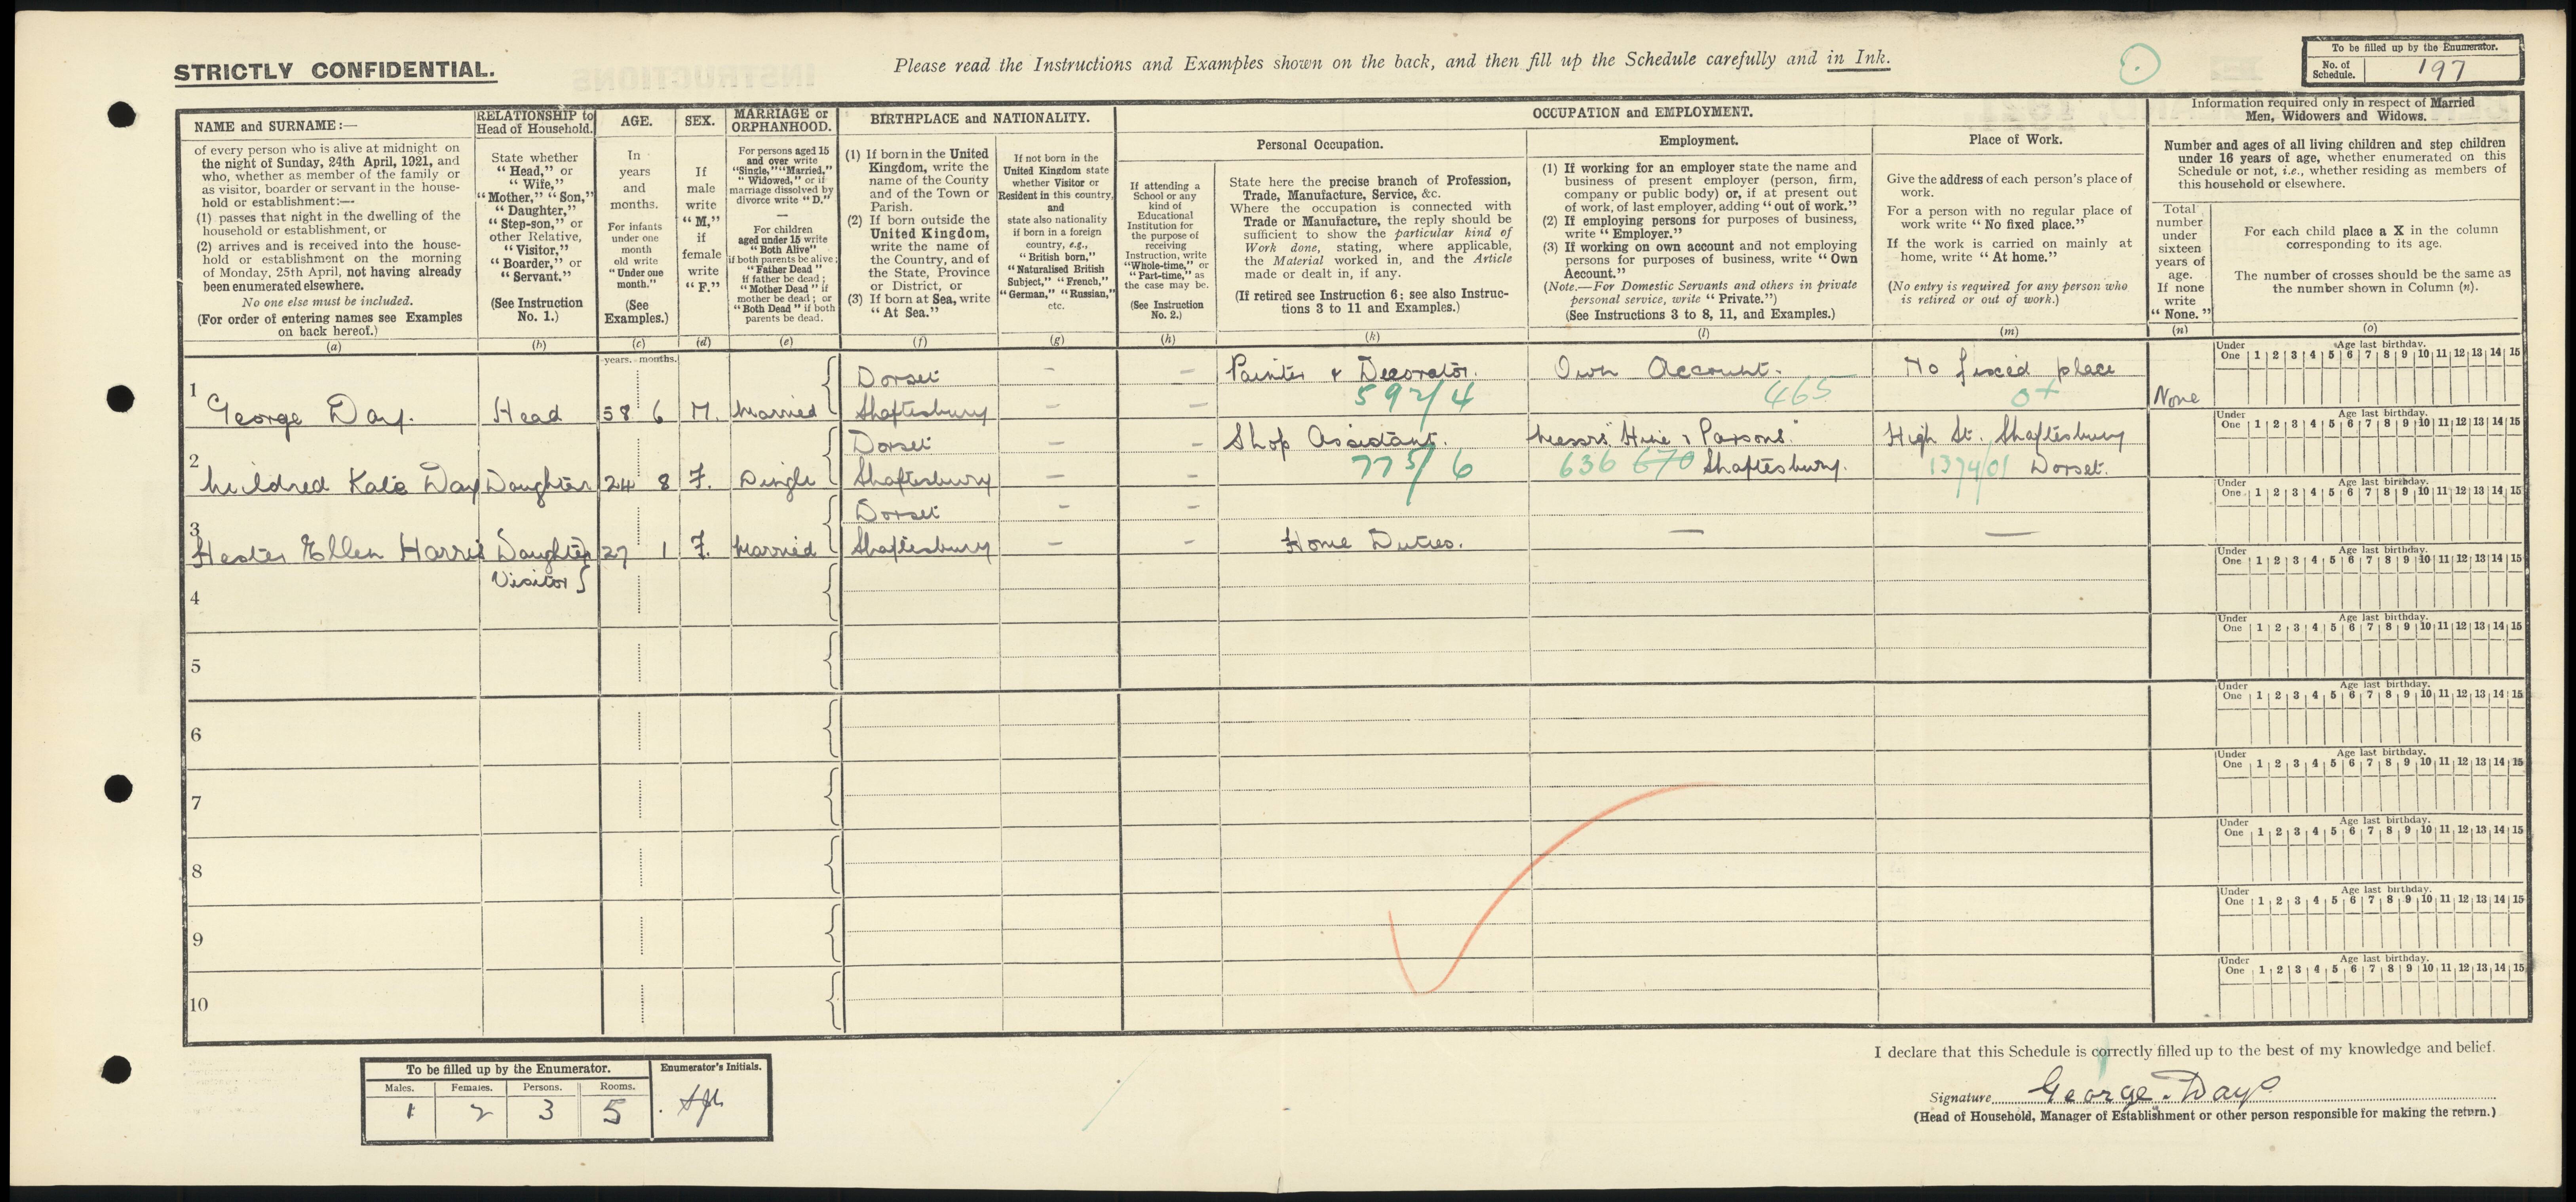 STRICTLY CONFIDENTIAL.
Please read the Instructions and Examples shown on the back, and then fill up the Schedule carefully and in Ink.
To be filled up by the Enumerator.
No. of Schedule. 197
NAME and SURNAME:—
of every person who is alive at midnight on
the night of Sunday, 24th April, 1921, and
who, whether as member of the family or
as visitor, boarder or servant in the house-
hold or establishment:—
(1) passes that night in the dwelling of the
household or establishment, or
(2) arrives and is received into the house-
hold or establishment on the morning
of Monday, 25th April, not having already
been enumerated elsewhere.
No one else must be included.
(For order of entering names see Examples
on back hereof.)
(a)
RELATIONSHIP to
Head of Household.
State whether
"Head," or
"Wife,"
"Mother," "Son,"
"Daughter,"
"Step-son," or
other Relative,
"Visitor,"
"Boarder," or
"Servant."
(See Instruction
No. 1.)
(b)
AGE.
In
years
and
months.
For infants
under one
month
old write
"Under one
month."
(See
Examples.)
(c)
SEX.
If
male
write
"M,"
if
female
write
"F."
(d)
MARRIAGE or
ORPHANHOOD.
For persons aged 15
and over write
"Single," "Married,"
"Widowed," or if
marriage dissolved by
divorce write "D."
—
For children
aged under 15 write
"Both Alive"
if both parents be alive;
"Father Dead"
if father be dead;
"Mother Dead" if
mother be dead; or
"Both Dead" if both
parents be dead.
(e)
BIRTHPLACE and NATIONALITY.
(1) If born in the United
Kingdom, write the
name of the County
and of the Town or
Parish.
(2) If born outside the
United Kingdom,
write the name of
the Country, and of
the State, Province
or District, or
(3) If born at Sea, write
"At Sea."
(f)
If not born in the
United Kingdom state
whether Visitor or
Resident in this country,
and
state also nationality
if born in a foreign
country, e.g.,
"British born,"
"Naturalised British
Subject," "French,"
"German," "Russian,"
etc.
(g)
OCCUPATION and EMPLOYMENT.
If attending a
School or any
kind of
Educational
Institution for
the purpose of
receiving
Instruction, write
"Whole-time," or
"Part-time," as
the case may be.
(See Instruction
No. 2.)
(h)
Personal Occupation.
State here the precise branch of Profession,
Trade, Manufacture, Service, &c.
Where the occupation is connected with
Trade or Manufacture, the reply should be
sufficient to show the particular kind of
Work done, stating, where applicable,
the Material worked in, and the Article
made or dealt in, if any.
(If retired see Instruction 6; see also Instruc-
tions 3 to 11 and Examples.)
(k)
Employment.
(1) If working for an employer state the name and
business of present employer (person, firm,
company or public body) or, if at present out
of work, of last employer, adding "out of work."
(2) If employing persons for purposes of business,
write "Employer."
(3) If working on own account and not employing
persons for purposes of business, write "Own
Account."
(Note.—For Domestic Servants and others in private
personal service, write "Private.")
(See Instructions 3 to 8, 11, and Examples.)
(l)
Place of Work.
Give the address of each person's place of
work.
For a person with no regular place of
work write "No fixed place."
If the work is carried on mainly at
home, write "At home."
(No entry is required for any person who
is retired or out of work.)
(m)
Information required only in respect of Married
Men, Widowers and Widows.
Number and ages of all living children and step children
under 16 years of age, whether enumerated on this
Schedule or not, i.e., whether residing as members of
this household or elsewhere.
Total
number
under
sixteen
years of
age.
If none
write
"None."
(n)
For each child place a X in the column
corresponding to its age.
The number of crosses should be the same as
the number shown in Column (n).
(o)
years. months.
Under One Age last birthday. 1 2 3 4 5 6 7 8 9 10 11 12 13 14 15
1 George Day. Head 58 6 M. Married Dorset Shaftesbury — — Painter & Decorator. 592/4 Own Account. 465 No fixed place 0+ None
Under One Age last birthday. 1 2 3 4 5 6 7 8 9 10 11 12 13 14 15
2 Mildred Kate Day Daughter 24 8 F. Single Dorset Shaftesbury — — Shop Assistant. 775/6 Messrs "Hine & Parsons" 636 670 Shaftesbury. High St. Shaftesbury 1374/01 Dorset.
Under One Age last birthday. 1 2 3 4 5 6 7 8 9 10 11 12 13 14 15
3 Hester Ellen Harris Daughter Visitor } 27 1 F. Married Dorset Shaftesbury — — Home Duties. — —
Under One Age last birthday. 1 2 3 4 5 6 7 8 9 10 11 12 13 14 15
4
Under One Age last birthday. 1 2 3 4 5 6 7 8 9 10 11 12 13 14 15
5
Under One Age last birthday. 1 2 3 4 5 6 7 8 9 10 11 12 13 14 15
6
Under One Age last birthday. 1 2 3 4 5 6 7 8 9 10 11 12 13 14 15
7
Under One Age last birthday. 1 2 3 4 5 6 7 8 9 10 11 12 13 14 15
8
Under One Age last birthday. 1 2 3 4 5 6 7 8 9 10 11 12 13 14 15
9
Under One Age last birthday. 1 2 3 4 5 6 7 8 9 10 11 12 13 14 15
10
To be filled up by the Enumerator.
Males. Females. Persons. Rooms.
1 2 3 5
Enumerator's Initials.
I declare that this Schedule is correctly filled up to the best of my knowledge and belief.
Signature George Day
(Head of Household, Manager of Establishment or other person responsible for making the return.)